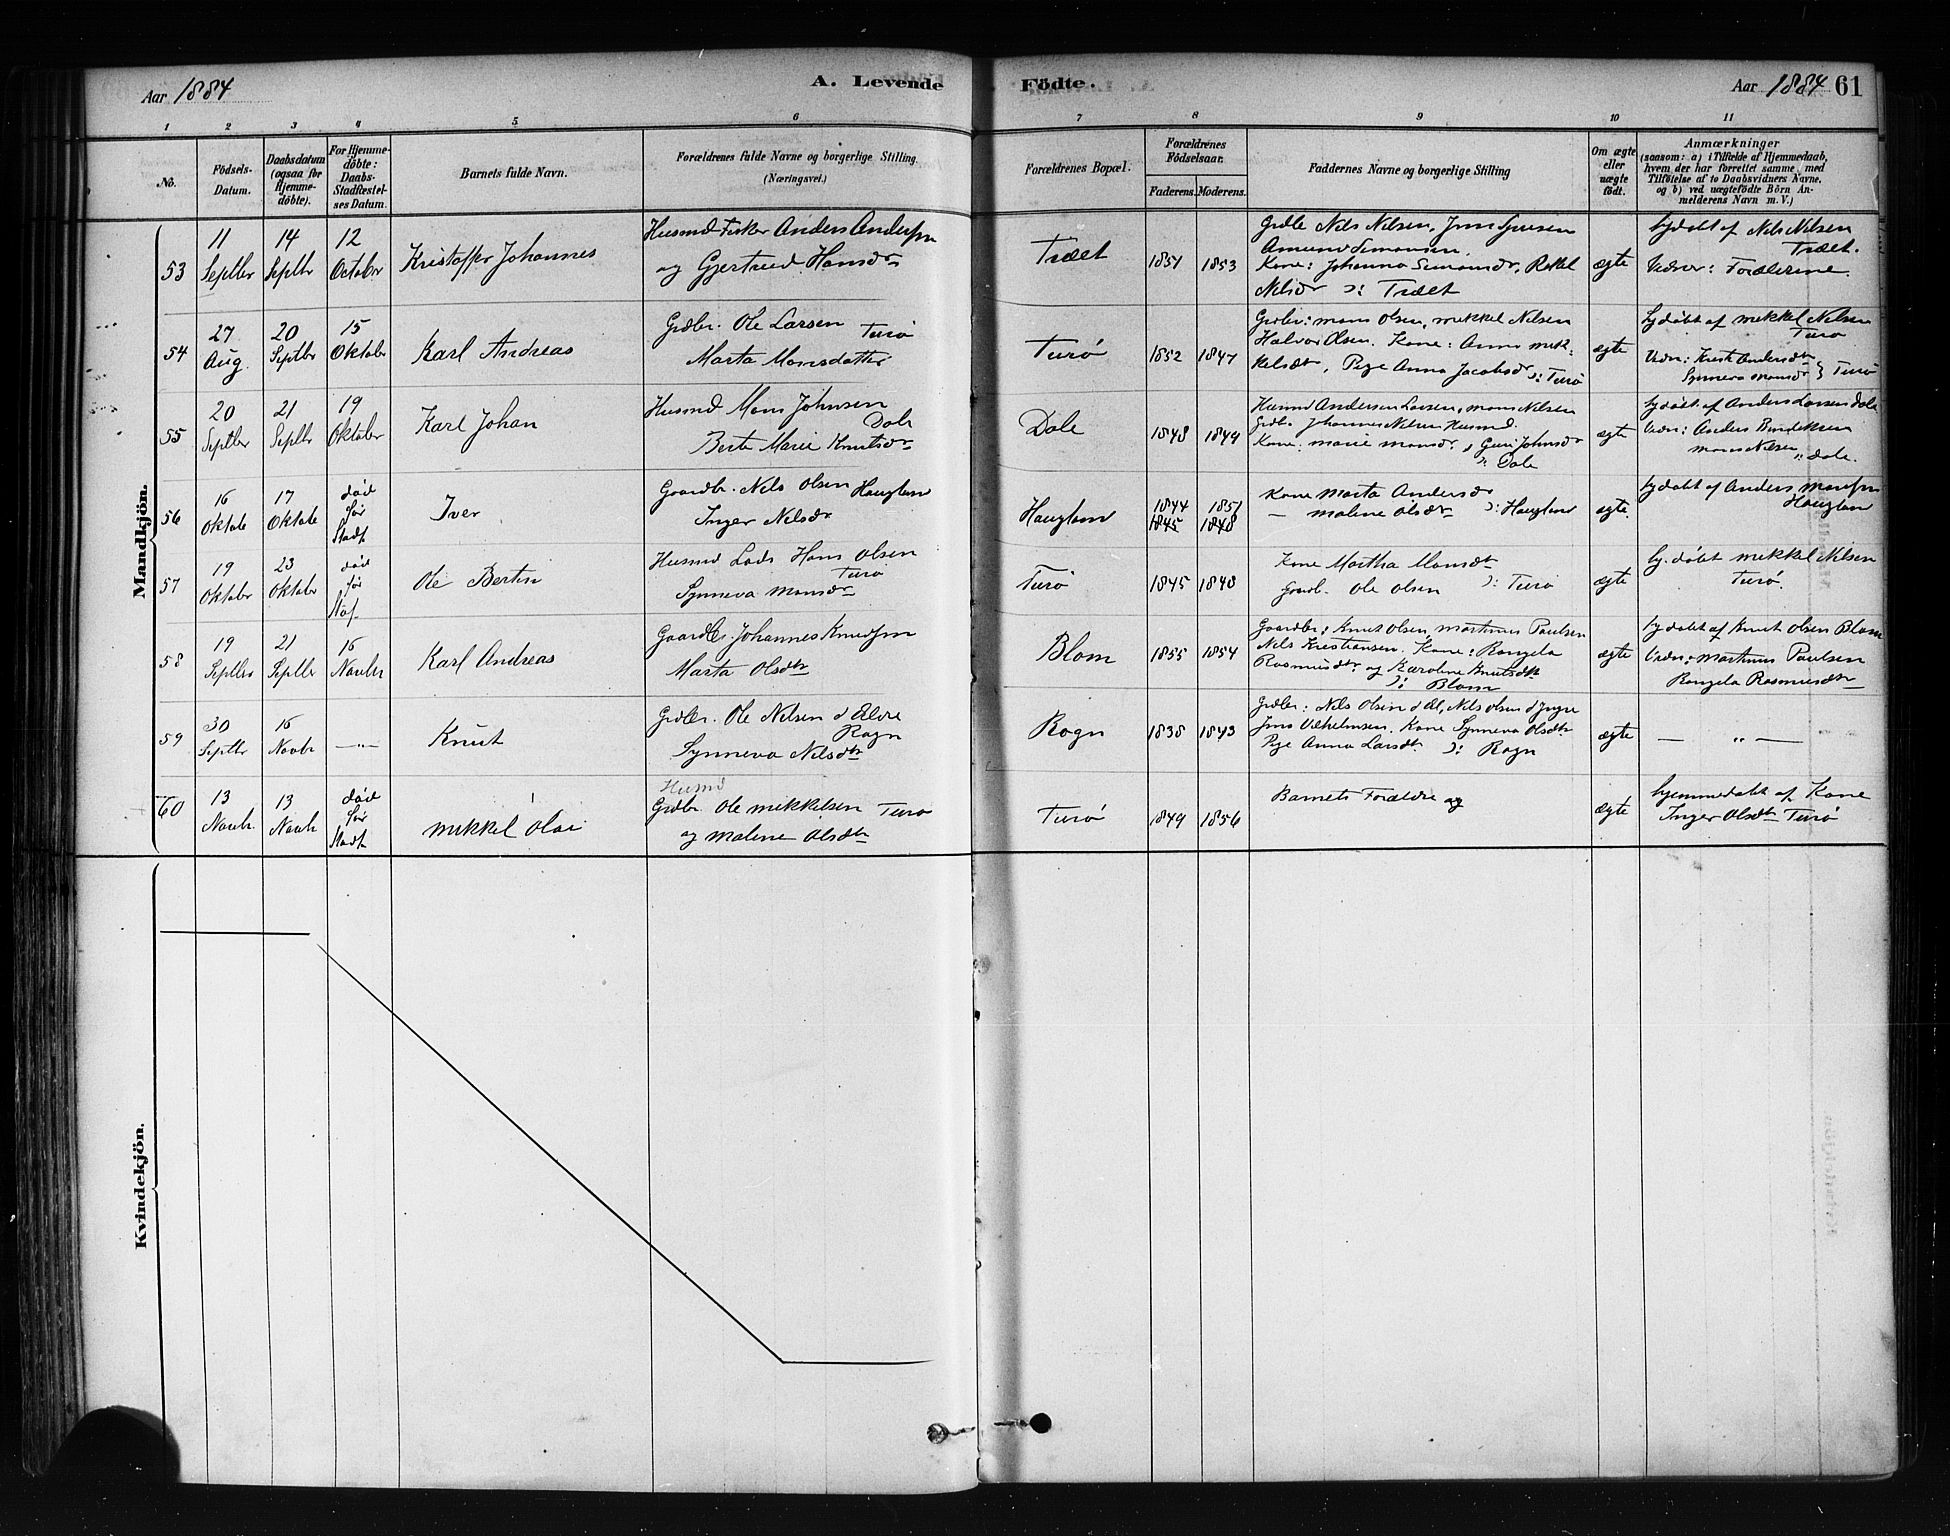 Aar 1884
A. Levende
Födte.
Aar 1884 61
1 2 3 4 5 6 7 8 9 10 11
No.
Födsels-
Datum.
Daabsdatum
(ogsaa for
Hjemme-
döbte).
For Hjemme-
döbte:
Daabs-
Stadfæstel-
ses Datum.
Barnets fulde Navn.
Forældrenes fulde Navne og borgerlige Stilling.
(Næringsvei.)
Forældrenes Bopæl.
Forældrenes
Födselsaar.
Faderens. Moderens.
Faddernes Navne og borgerlige Stilling
Om ægte
eller
uægte
födt.
Anmærkninger
(saasom: a) i Tilfælde af Hjemmedaab,
hvem der har forrettet samme, med
Tilföielse af to Daabsvidners Navne,
og b) ved uægtefödte Börn An-
melderens Navn m. V.)
Mandkjön.
53
11
Septbr
14
Septbr
12
October
Kristoffer Johannes
Husmd Fisker Anders Andersen
og Gjertrud Hansdr
Træet
1851 1853
Grdbr Nils Nilsen, Jens
Amund Simonsen,
Kone: Johanna Simonsdr, Rakel
Nilsdr ɔ: Træet
ægte
hjdøbt af Nils Nilsen
Træet.
Vidner: Forældrene.
54
27
Aug.
20
Septbr
15
Oktober
Karl Andreas
Grdbr. Ole Larsen Turø
Marta Monsdatter
Turø
1852 1847
Grdbr: Mons Olsen, Mikkel Nilsen
Halvor Olsen. Kone: Anna Mik-
kelsdt, Pige Anna Jacobsdr ɔ: Turø
ægte
hjdøbt af Mikkel Nilsen
Turø
Vidn: Krist. Andersdt
Synneva Monsdr } Turø
55
20
Septbr
21
Septbr
19
Oktober
Karl Johan
Husmd Mons Johnsen
Dale
Berte Marie Knutsdr
Dale
1848 1849
Husmd Andersen Larsen, Mons Nilsen
Grdb. Johannes Nilsen Husmd.
Kone: Marie Monsdr, Guri Johnsdr
ɔ: Dale
ægte
hjdøbt af Anders Larsen Dale
Vidn: Anders
Mons Nilsen ɔ: Dale.
56
16
Oktobe
17
Oktobe
død
før
Stadf
Iver
Gaardbr. Nils Olsen Haugland
Inger Nilsdr
Haugland
1844 1851
1845 1848
Kone Marta Andersdr
— Malene Olsdt ɔ: Haugland
ægte.
hjdøbt af Anders Monsen
Haugland
57
19
Oktober
23
Oktober
død
før
Staf.
Ole Bertin
Husmd Lods Hans Olsen
Turø
Synneva Monsdr
Turø
1845 1848
Kone Martha Monsdt
Gaardb. Ole Olsen ɔ: Turø
ægte
hj. døbt Mikkel Nilsen
Turø.
58
19
Septbr
21
Septbr
16
Novbr
Karl Andreas
Gaardbr. Johannes Knudsen
Marta Olsdtr
Blom
1855 1854
Gaardbr: Knut Olsen, Martinus Paulsen
Nils Kristiansen. Kone: Rangela
Rasmusdtr og Karoline Knutsdtr
ɔ: Blom
ægte
hjdøbt af Knut Olsen Blom
Vidn: Martinus Paulsen
Rangela Rasmusdtr
59
30
Septbr
16
Novbr
—„—
Knut
Grdbr. Ole Nilsen d Eldre
Rogn
Synneva Nilsdtr
Rogn
1838 1843
Grdbr: Nils Olsen d æl, Nils Olsen d yngre
Jens Vilhelmsen. Kone Synneva Olsdtr
Pige Anna Larsdt. ɔ: Rogn
ægte
— „ —
60
13
Novbr.
13
Novbr
død
før
Stadf
Mikkel Olai
Husmd
Grdbr. Ole Mikkelsen Turø
og Malene Olsdtr
Turø
1849 1856
Barnets Forældre og
ægte
hjemmedøbt af Kone
Inger Olsdtr Turø
Kvindekjön.